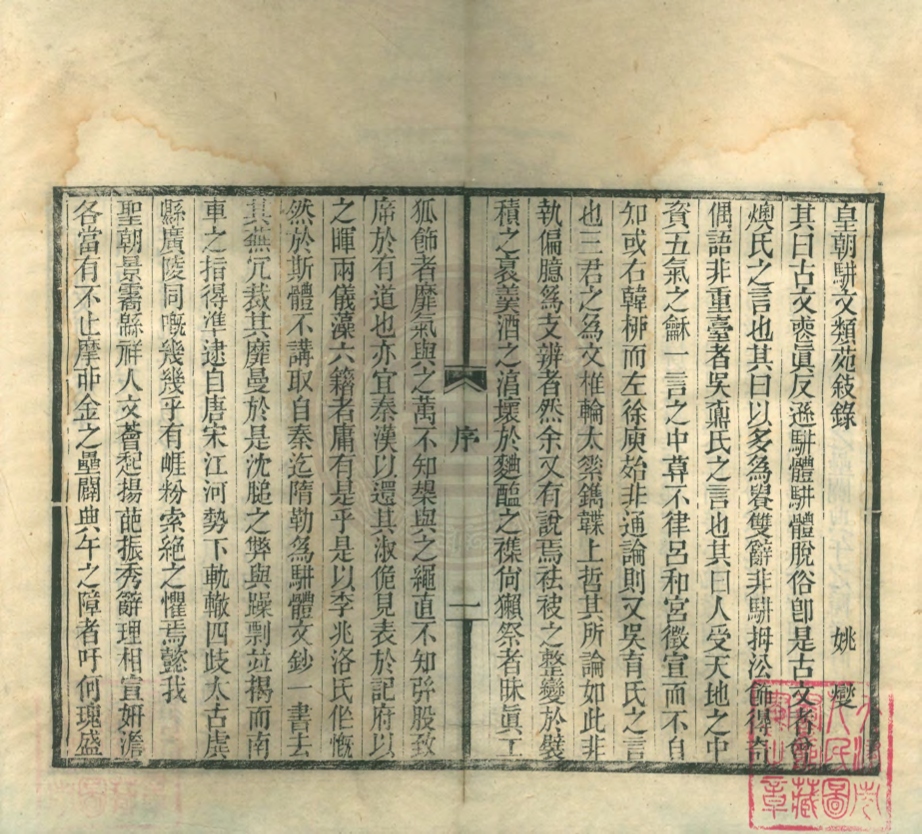 皇朝駢文類苑敍錄
姚燮
其曰古文喪眞反遜駢體駢體脫俗卽是古文者曾
燠氏之言也其曰以多爲貴雙辭非駢拇沿飾得奇
偶語非重臺者吳鼒氏之言也其曰人受天地之中
資五氣之龢一言之中莫不律呂和宮徵宣而不自
知或右韓桺而左徐庾始非通論則又吳育氏之言
也三君之為文椎輪大輅鐫鞢上哲其所論如此非
執偏臆爲支辨者然余又有說焉袪被之整變於襞
積之裏羙酒之湻壞於麯醖之襍倘獺祭者昧眞工
狐飾者靡氣與之萬不知槼與之繩直不知骿股致
席於有道也亦宜秦漢以還其淑佹見表於記府以
之暉兩儀藻六籍者庸有是乎是以李兆洛氏㤰慨
然於斯體不講取自秦迄隋勒爲駢體文鈔一書去
其蕪冗裁其靡曼於是沈膇之弊與躁剽竝揭而南
車之指得準逮自唐宋江河勢下軌轍四歧太古虞
縣廣陵同嘅幾幾乎有崕粉索絕之懼焉懿我
聖朝景霱縣祥人文薈起揚葩振秀辭理相宣妍澹
各當有不止摩卬金之壘闢典午之障者吁何瑰盛
序
一